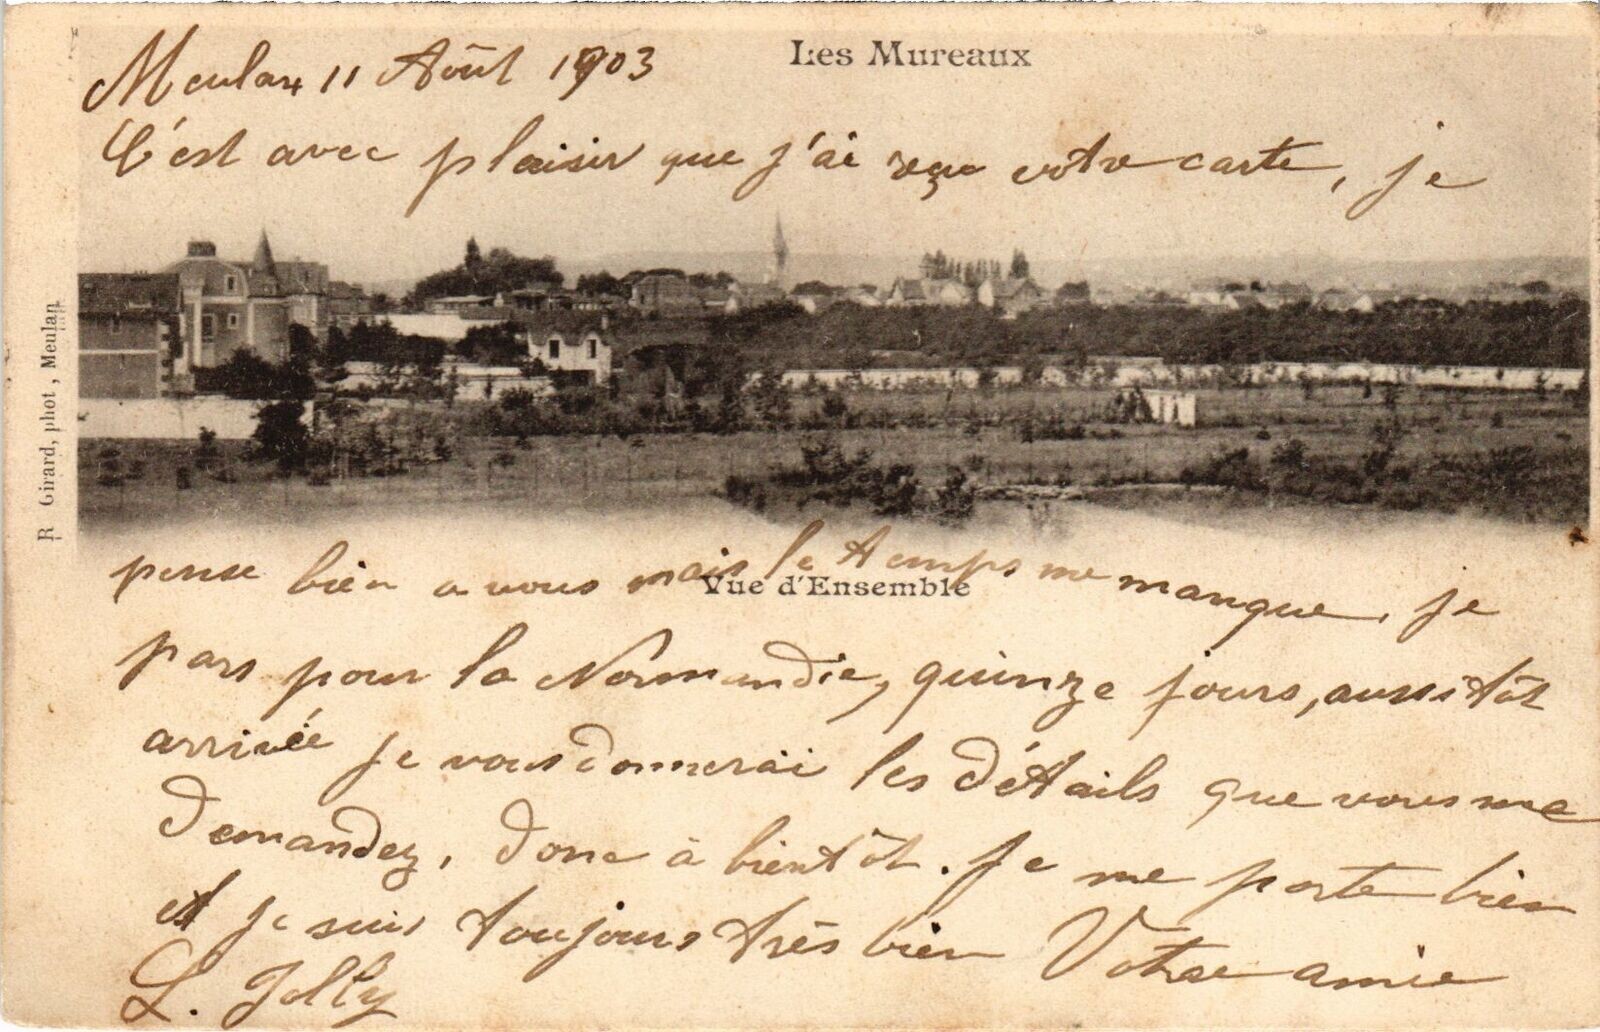 Les Mureaux
Meulan 11 Août 1903
C'est avec plaisir que j'ai reçu votre carte, je
R Girard, phot, Meulan
pense bien a vous mais le temps me manque, je
Vue d'Ensemble
pars pour la Normandie, quinze jours, aussitôt
arrivée je vous donnerai les détails que vous me
demandez, donc à bientôt. Je me porte bien
et je suis toujours très bien Votre amie
L. Jolly